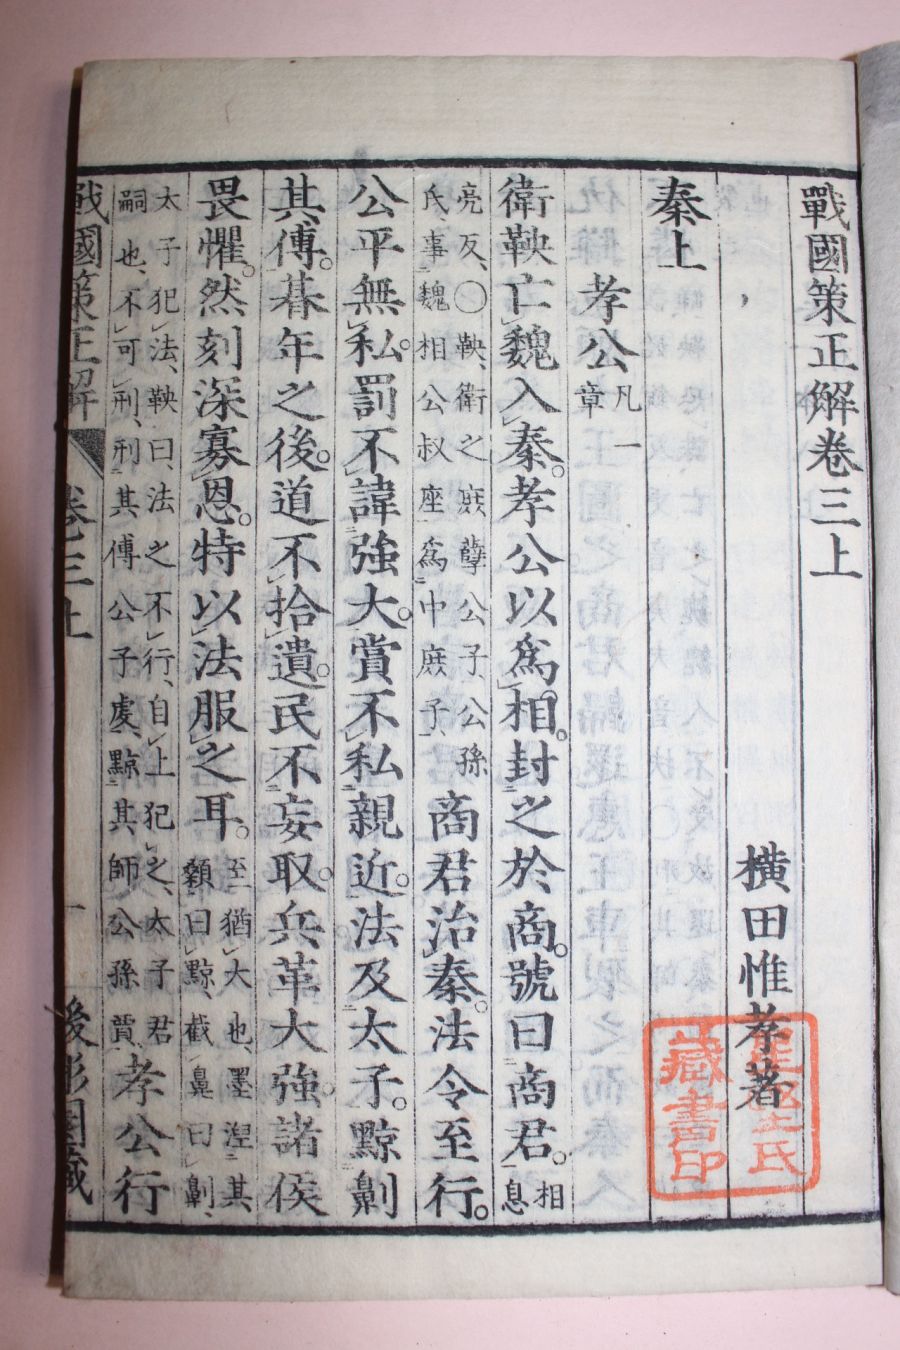 戰國策正解卷三上
橫田惟孝著
秦上
孝公凡一章
衛鞅亡魏入秦。孝公以爲相。封之於商。號曰商君。相息
亮反、〇鞅、衛之庶孽公子、公孫
氏、事魏相公叔座爲中庶子、
商君治秦。法令至行。
公平無私。罰不諱強大。賞不私親近。法及太子。黥劓
其傅。朞年之後。道不拾遺。民不妄取。兵革大強。諸侯
畏懼。然刻深寡恩。特以法服之耳。
至猶大也、墨湼其
顙曰黥、截鼻曰劓、
太子犯法、鞅曰、法之不行、自上犯之、太子君
嗣也、不可刑、刑其傅公子虔、黥其師公孫賈、
孝公行
戰國策正解
卷三上
一
藏書印